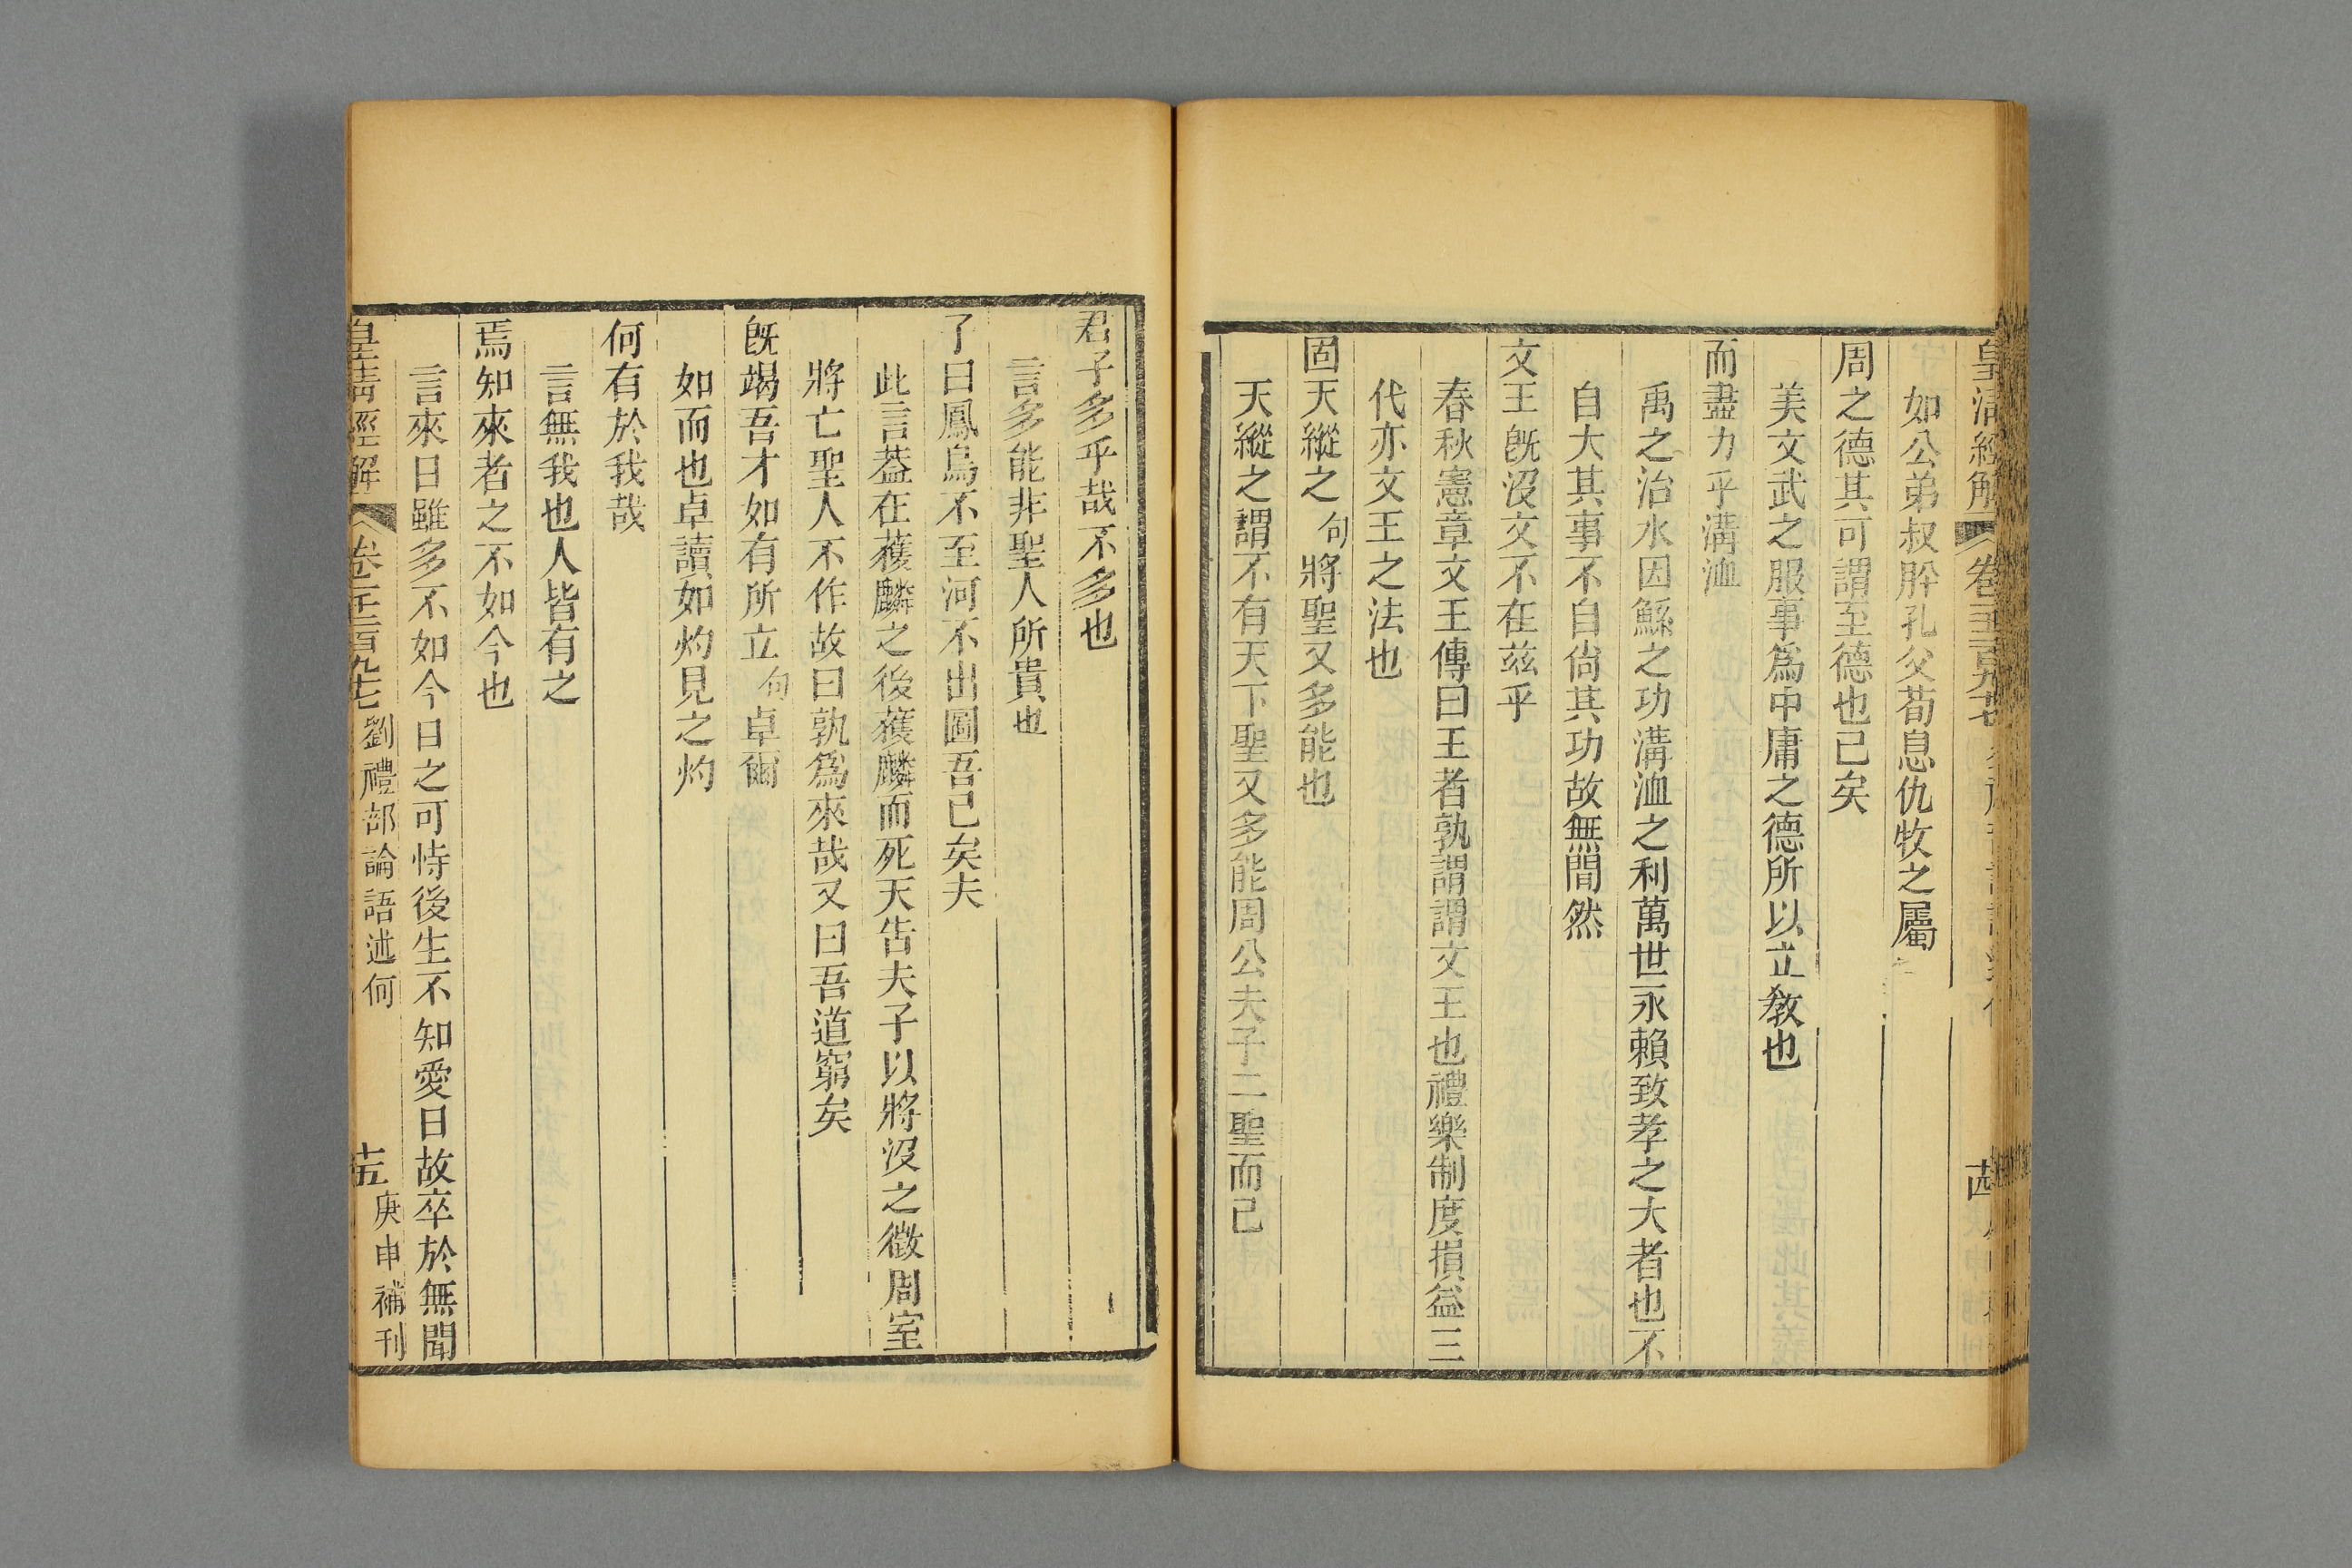 皇清經解 卷一千二百九十七
如公弟叔肸孔父荀息仇牧之屬
周之德其可謂至德也已矣
美文武之服事爲中庸之德所以立教也
而盡力乎溝洫
禹之治水因鯀之功溝洫之利萬世永賴致孝之大者也不
自大其事不自尙其功故無間然
文王旣沒文不在茲乎
春秋憲章文王傳曰王者孰謂謂文王也禮樂制度損益三
代亦文王之法也
固天縱之句將聖又多能也
天縱之謂不有天下聖又多能周公夫子二聖而已
君子多乎哉不多也
言多能非聖人所貴也
子曰鳳鳥不至河不出圖吾已矣夫
此言葢在獲麟之後獲麟而死天告夫子以將沒之徵周室
將亡聖人不作故曰孰爲來哉又曰吾道窮矣
旣竭吾才如有所立句卓爾
如而也卓讀如灼見之灼
何有於我哉
言無我也人皆有之
焉知來者之不如今也
言來日雖多不如今日之可恃後生不知愛日故卒於無聞
皇清經解 卷一千二百九十七 劉禮部論語述何 十五 庚申補刊